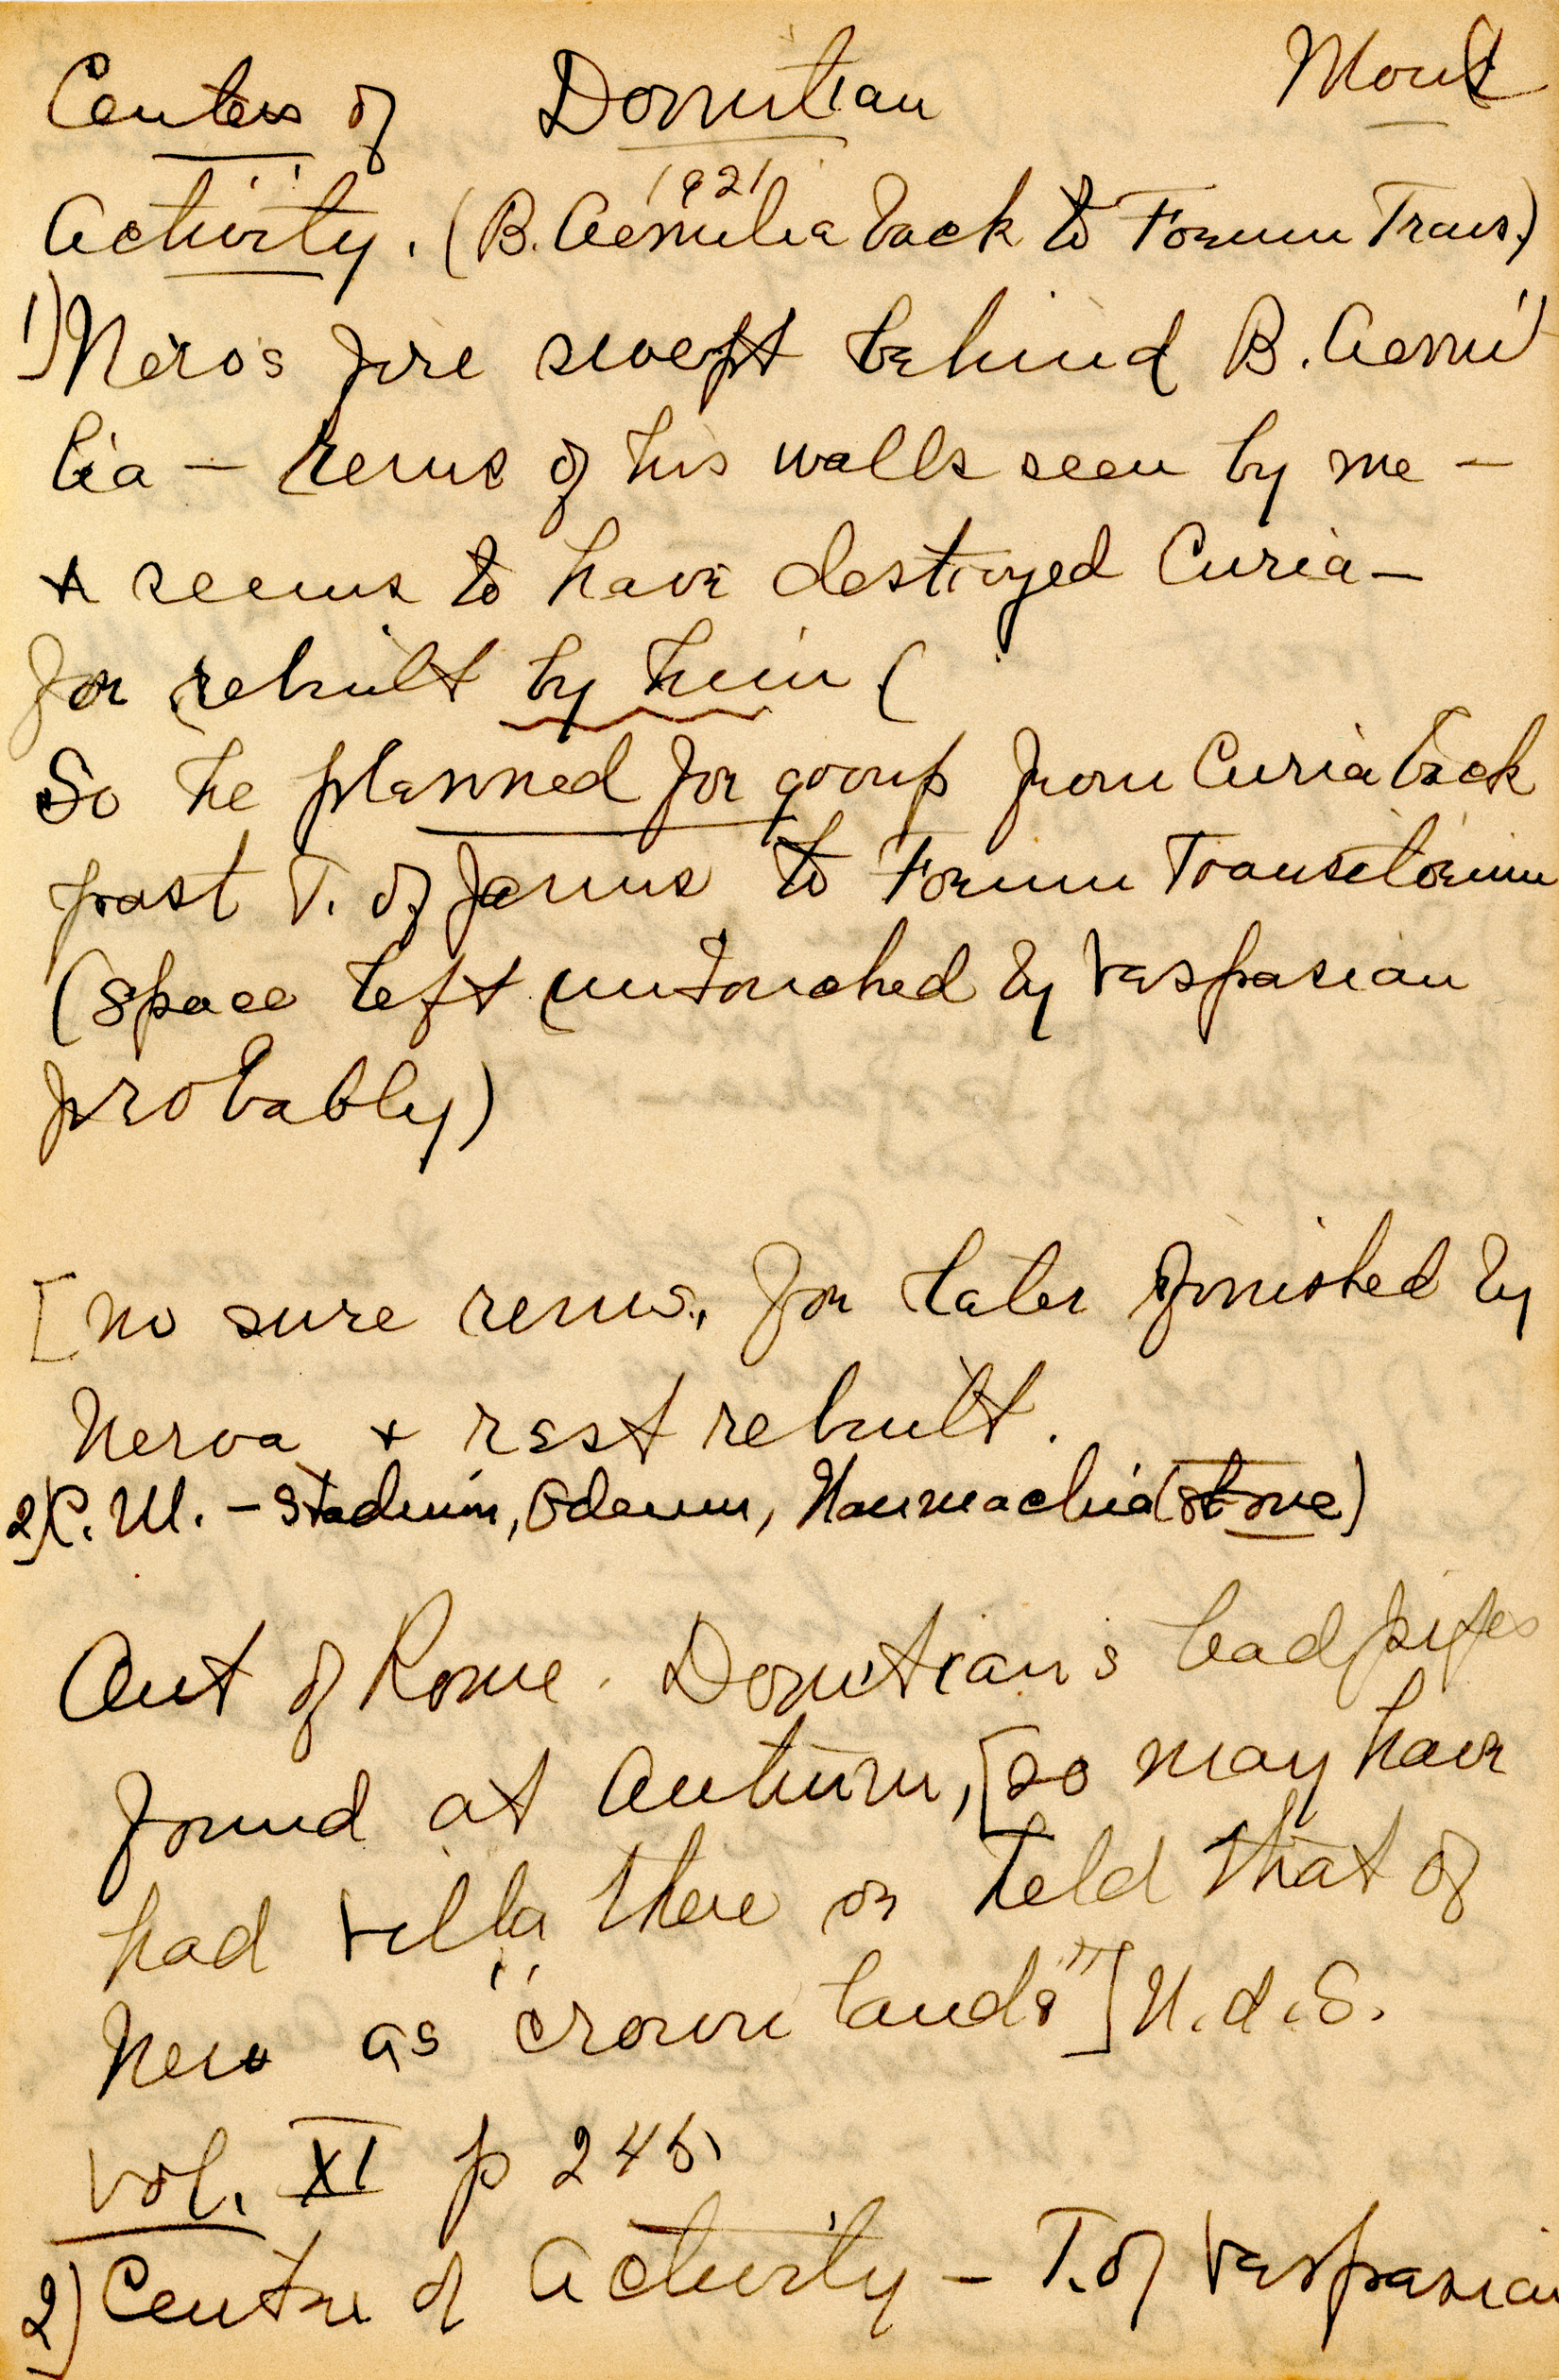 Centers of Domitian
Activity. (B. Aemilia back to Forum Trans.)
1921
1) Nero's fire swept behind B. Aemi
lia — rems of his walls seen by me —
+ seems to have destroyed Curia —
for rebuilt by him (
So he planned for group from Curia back
past T. of Janus to Forum Transitorium
(space left untouched by Vespasian
probably)
[no sure rems., for later finished by
Nerva + rest rebuilt.
2) C. M. — Stadium, Odeum, Naumachia (stone)
Out of Rome. Domitian's lead pipes
found at Antium, [so may have
had villa there or held that of
Nero as "crown lands"] N.d.S.
Vol. XI p 245.
2) Centre of Activity — T. of Vespasian